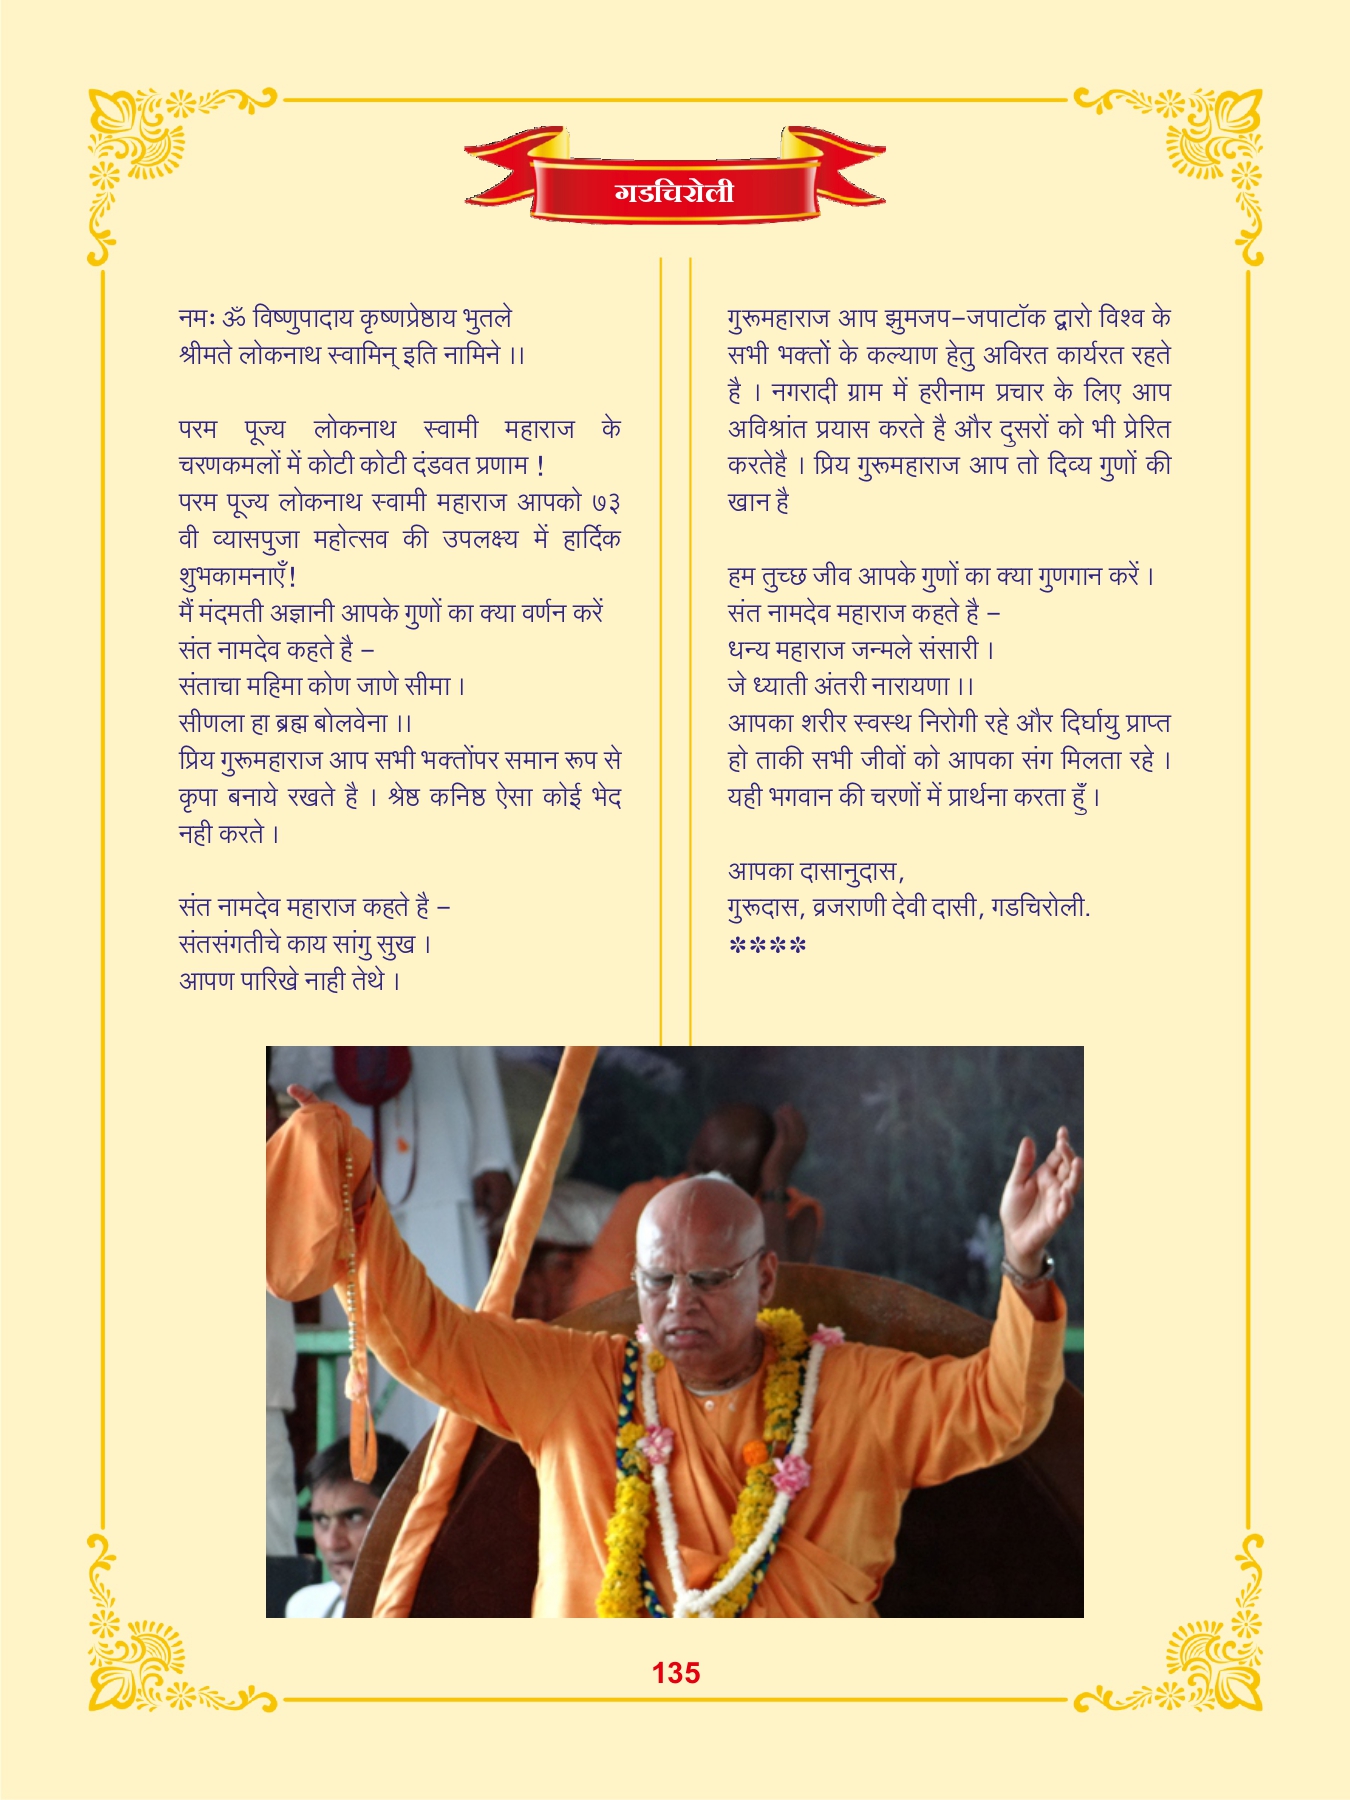 गडचिरोली
नमः ॐ विष्णुपादाय कृष्णप्रेष्ठाय भुतले
श्रीमते लोकनाथ स्वामिन् इति नामिने ।।
परम पूज्य लोकनाथ स्वामी महाराज के
चरणकमलों में कोटी कोटी दंडवत प्रणाम !
परम पूज्य लोकनाथ स्वामी महाराज आपको ७३
वी व्यासपुजा महोत्सव की उपलक्ष्य में हार्दिक
शुभकामनाएँ!
मैं मंदमती अज्ञानी आपके गुणों का क्या वर्णन करें
संत नामदेव कहते है –
संताचा महिमा कोण जाणे सीमा ।
सीणला हा ब्रह्म बोलवेना ।।
प्रिय गुरूमहाराज आप सभी भक्तोंपर समान रूप से
कृपा बनाये रखते है । श्रेष्ठ कनिष्ठ ऐसा कोई भेद
नही करते ।
संत नामदेव महाराज कहते है –
संतसंगतीचे काय सांगु सुख ।
आपण पारिखे नाही तेथे ।
गुरूमहाराज आप झुमजप–जपाटॉक द्वारो विश्व के
सभी भक्तों के कल्याण हेतु अविरत कार्यरत रहते
है । नगरादी ग्राम में हरीनाम प्रचार के लिए आप
अविश्रांत प्रयास करते है और दुसरों को भी प्रेरित
करतेहै । प्रिय गुरूमहाराज आप तो दिव्य गुणों की
खान है
हम तुच्छ जीव आपके गुणों का क्या गुणगान करें ।
संत नामदेव महाराज कहते है –
धन्य महाराज जन्मले संसारी ।
जे ध्याती अंतरी नारायणा ।।
आपका शरीर स्वस्थ निरोगी रहे और दिर्घायु प्राप्त
हो ताकी सभी जीवों को आपका संग मिलता रहे ।
यही भगवान की चरणों में प्रार्थना करता हुँ ।
आपका दासानुदास,
गुरूदास, व्रजराणी देवी दासी, गडचिरोली.
✽✽✽✽
135